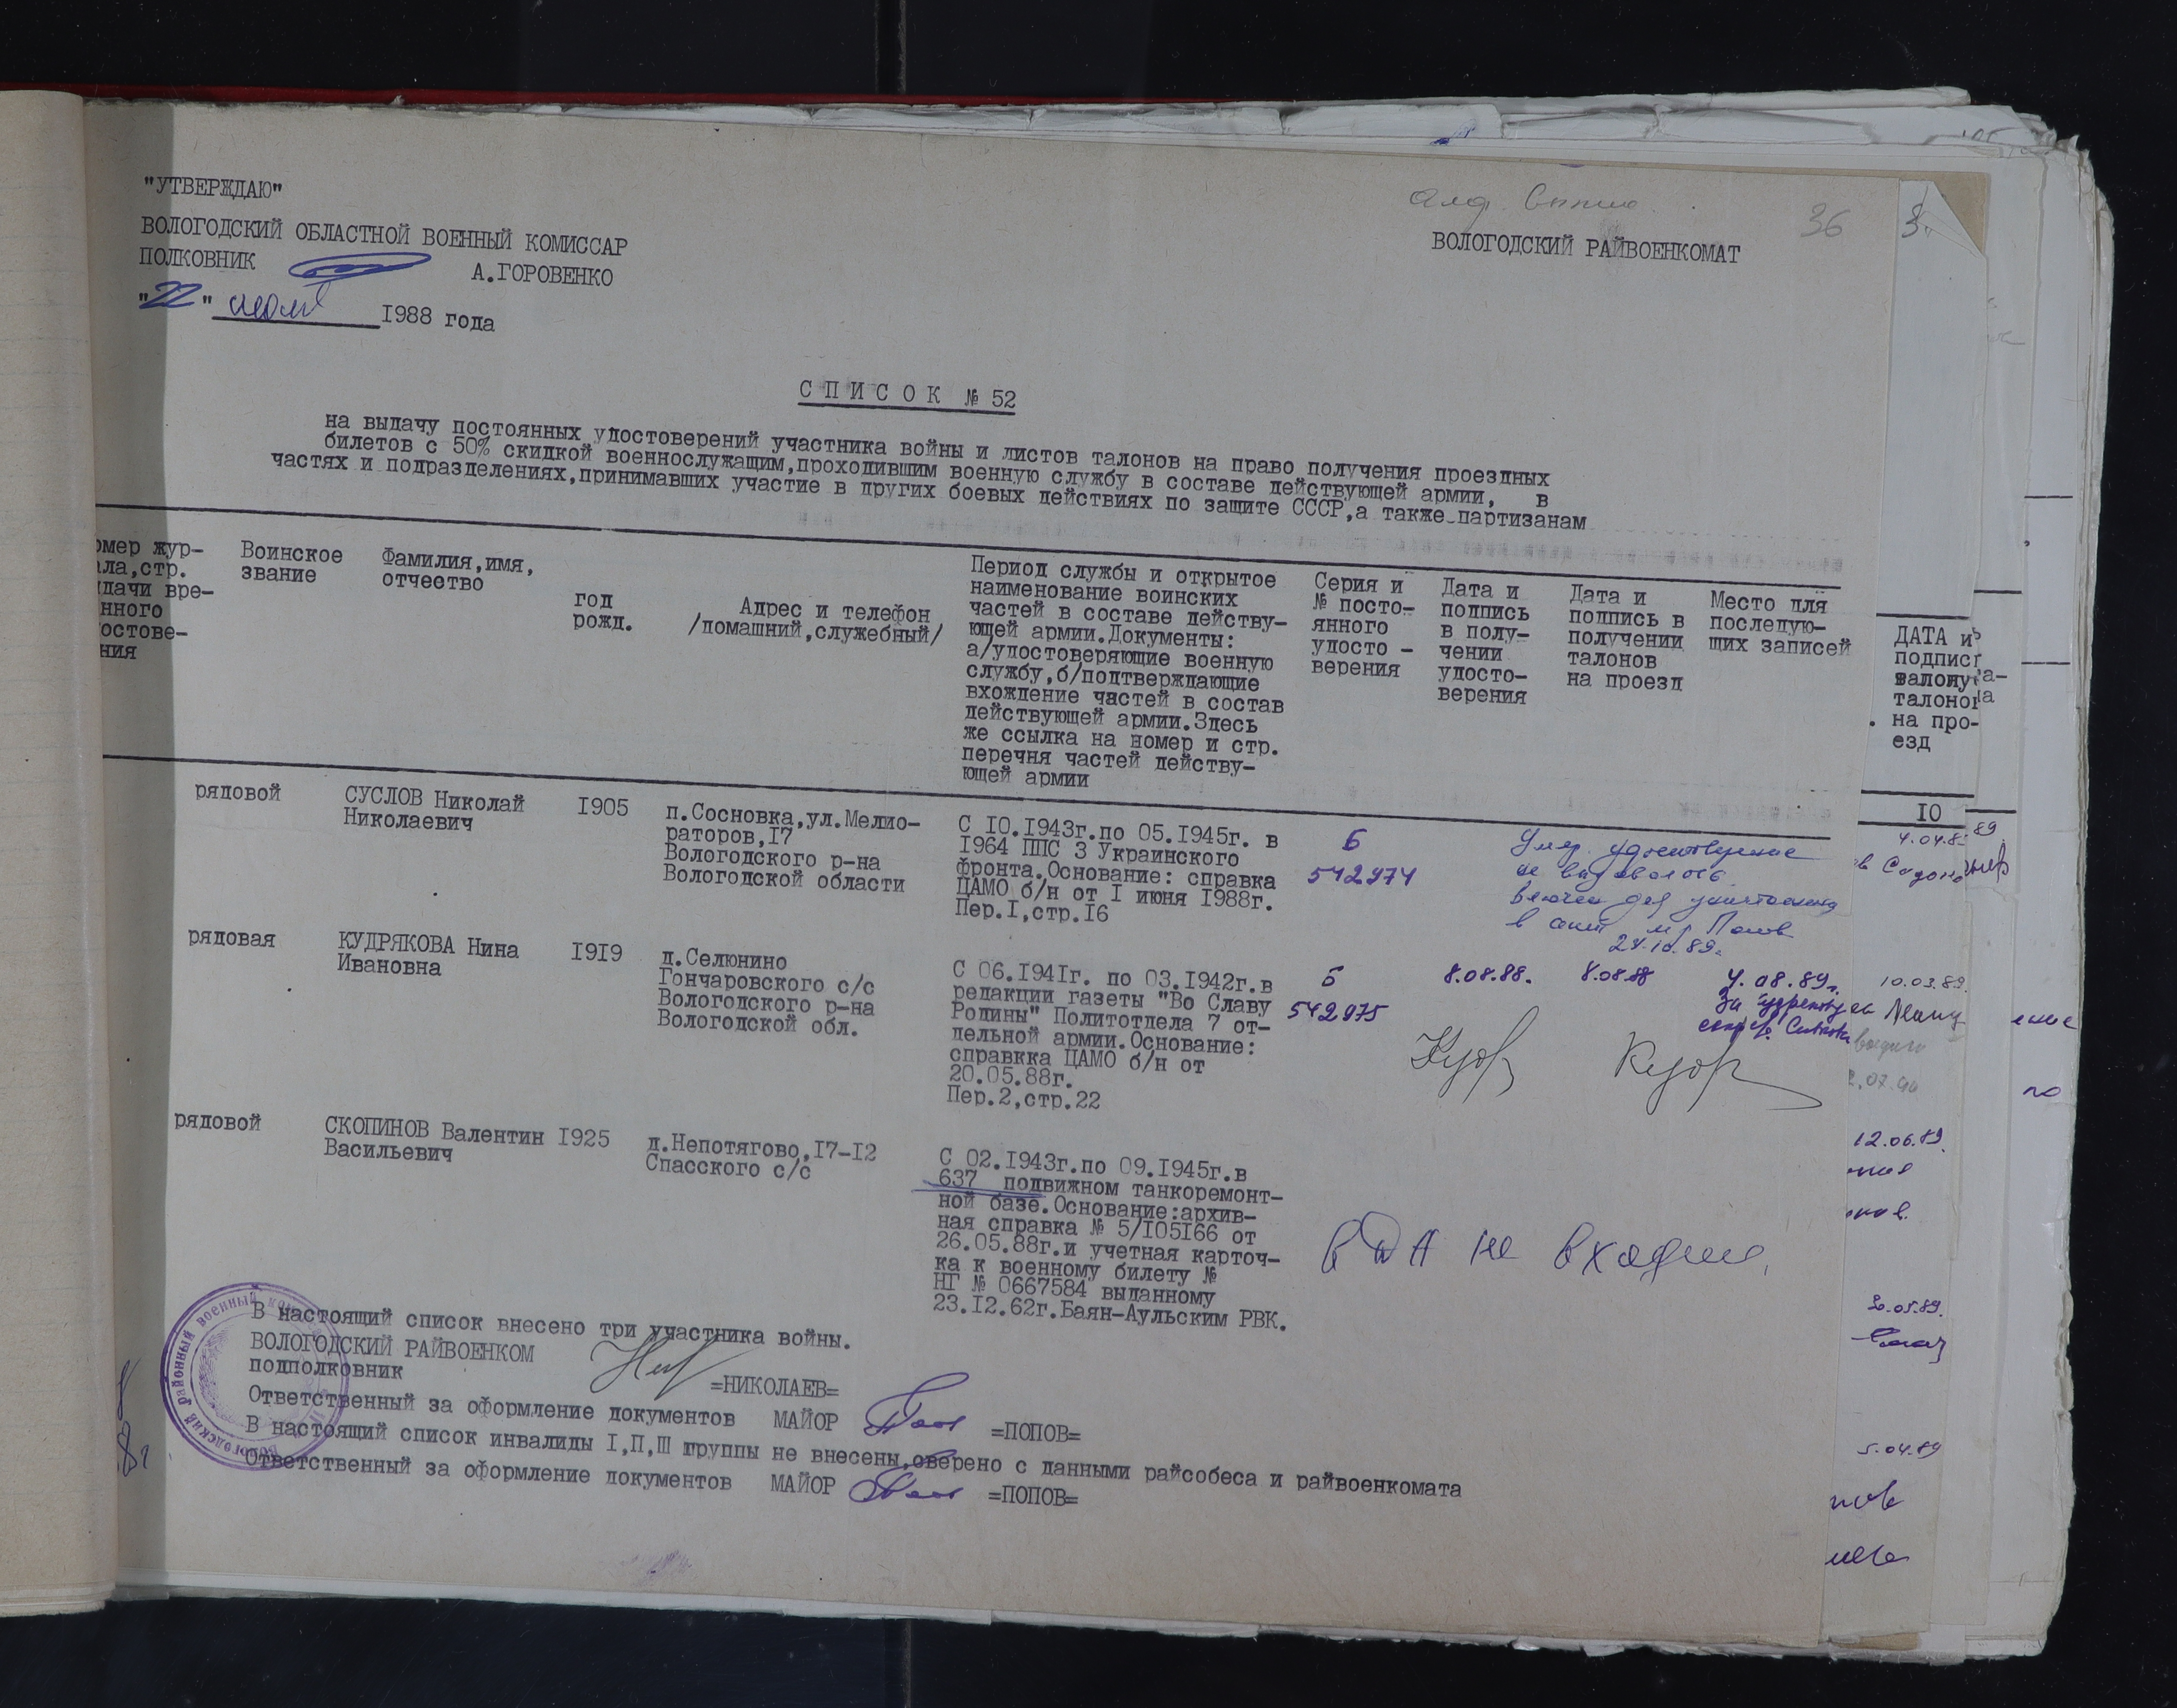 "УТВЕРЖДАЮ"
ВОЛОГОДСКИЙ ОБЛАСТНОЙ ВОЕННЫЙ КОМИССАР
ПОЛКОВНИК А.ГОРОВЕНКО
"22" июля 1988 года
36
ВОЛОГОДСКИЙ РАЙВОЕНКОМАТ
СПИСОК № 52
на выдачу постоянных удостоверений участника войны и листов талонов на право получения проездных
билетов с 50% скидкой военнослужащим,проходившим военную службу в составе действующей армии, в
частях и подразделениях,принимавших участие в других боевых действиях по защите СССР,а также партизанам
омер жур-
ала,стр.
дачи вре-
нного
остове-
ния
Воинское
звание
Фамилия,имя,
отчество
год
рожд.
Адрес и телефон
/домашний,служебный/
Период службы и открытое
наименование воинских
частей в составе действу-
ющей армии.Документы:
а/удостоверяющие военную
службу,б/подтверждающие
вхождение частей в состав
действующей армии.Здесь
же ссылка на номер и стр.
перечня частей действу-
ющей армии
Серия и
№ посто-
янного
удосто -
верения
Дата и
подпись
в полу-
чении
удосто-
верения
Дата и
подпись в
получении
талонов
на проезд
Место для
последую-
щих записей
рядовой
СУСЛОВ Николай
Николаевич
1905
п.Сосновка,ул.Мелио-
раторов,17
Вологодского р-на
Вологодской области
С 10.1943г.по 05.1945г. в
1964 ППС 3 Украинского
фронта.Основание: справка
ЦАМО б/н от 1 июня 1988г.
Пер.1,стр.16
Б
542974
Умер. удостоверение
не выдавалось
в Попов
24.10.89г.
рядовая
КУДРЯКОВА Нина
Ивановна
1919
д.Селюнино
Гончаровского с/с
Вологодского р-на
Вологодской обл.
С 06.1941г. по 03.1942г.в
редакции газеты "Во Славу
Родины" Политотдела 7 от-
дельной армии.Основание:
справкка ЦАМО б/н от
20.05.88г.
Пер.2,стр.22
Б
542975
8.08.88.
8.08.88
4.08.89г.
рядовой
СКОПИНОВ Валентин
Васильевич
1925
д.Непотягово,17-12
Спасского с/с
С 02.1943г.по 09.1945г.в
637 подвижном танкоремонт-
ной базе.Основание:архив-
ная справка № 5/105166 от
26.05.88г.и учетная карточ-
ка к военному билету №
НГ № 0667584 выданному
23.12.62г.Баян-Аульским РВК.
в ДА не входил
В настоящий список внесено три участника войны.
ВОЛОГОДСКИЙ РАЙВОЕНКОМ
подполковник =НИКОЛАЕВ=
Ответственный за оформление документов МАЙОР =ПОПОВ=
В настоящий список инвалиды I,П,Ш группы не внесены,сверено с данными райсобеса и райвоенкомата
Ответственный за оформление документов МАЙОР =ПОПОВ=
ДАТА и
подпис
талонов
на про-
езд
10
10.03.89.
12.06.89
5.04.89